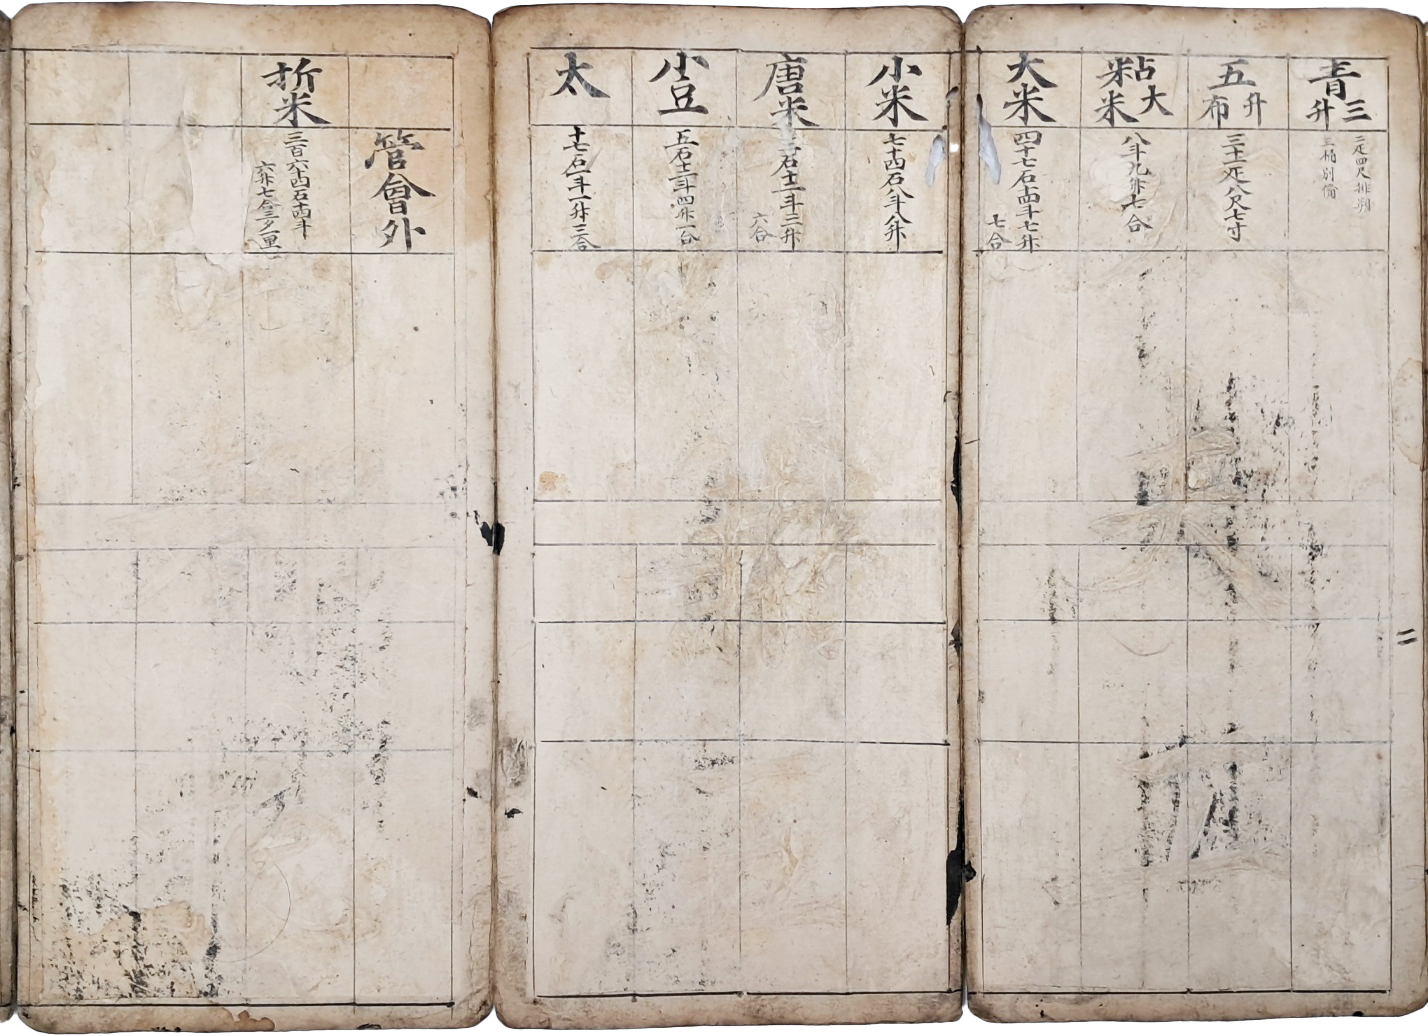 青三升
二疋四尺排朔
三桶別備
五升布
三十二疋八尺七寸
大粘米
八斗九升七合
大米
四十七石十四斗七升
七合
小米
七十四石八斗八升
唐米
石十二斗三升
六合
小豆
五石十三斗四升一合
太
十七石一斗一升三合
管會外
折米
三百六十四石十四斗
六升七合三夕一里